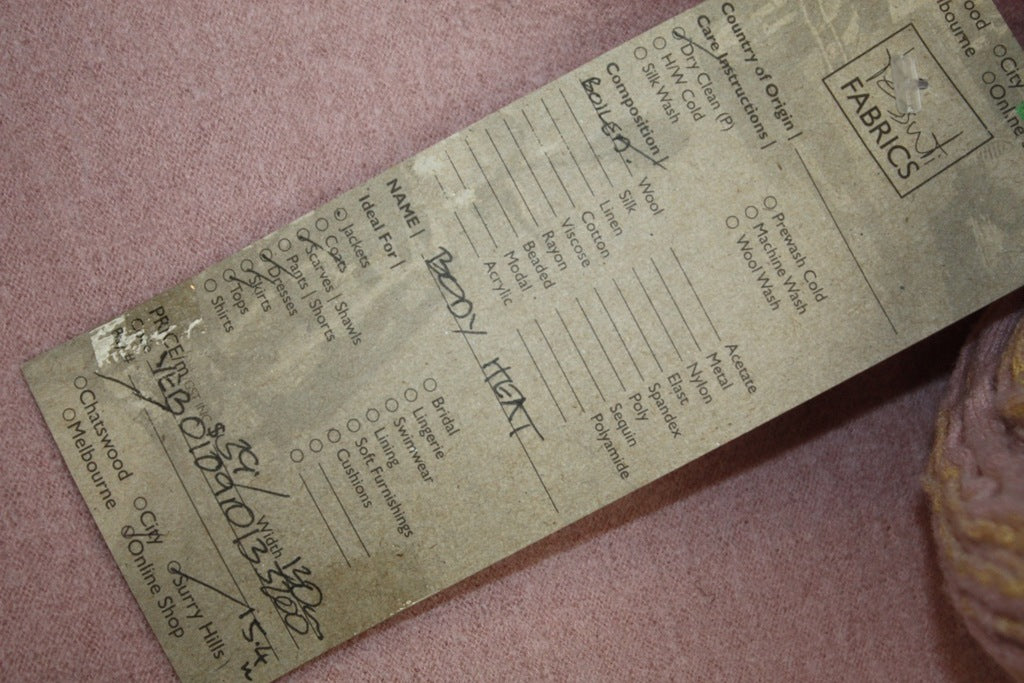 Tessuti
FABRICS
Country of Origin |
Care Instructions |
Dry Clean (P)
H/W Cold
Silk Wash
Prewash Cold
Machine Wash
Wool Wash
Composition |
BOILED.
Wool
Silk
Linen
Cotton
Viscose
Rayon
Beaded
Modal
Acrylic
Acetate
Metal
Nylon
Elast
Spandex
Poly
Sequin
Polyamide
NAME | BODY HEAT
Ideal For |
Jackets
Coats
Scarves | Shawls
Pants | Shorts
Dresses
Skirts
Tops
Shirts
Bridal
Lingerie
Swimwear
Lining
Soft Furnishings
Cushions
PRICE/m $39/
Width
Chatswood
Melbourne
City
Online Shop
Surry Hills
15.4
ood
bourne
City
Online